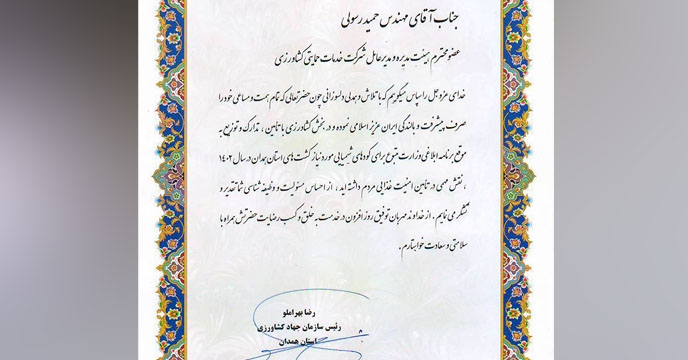 جناب آقای مهندس حمید رسولی
عضو محترم هیئت مدیره و مدیرعامل شرکت خدمات حمایتی کشاورزی
خدای عزوجل را سپاس میگوییم که با تلاش و همدلی دلسوزانی چون حضرتعالی که تمام همت و مساعی خود را
صرف پیشرفت و بالندگی ایران عزیز اسلامی نموده و در بخش کشاورزی با تأمین ، تدارک و توزیع به
موقع برنامه ابلاغی وزارت متبوع برای کودهای شیمیایی مورد نیاز کشت های استان همدان در سال ۱۴۰۲
، نقش مهمی در تأمین امنیت غذایی مردم داشته اید ، از احساس مسئولیت و وظیفه شناسی شما تقدیر و
تشکر می نمایم . از خداوند مهربان توفیق روز افزون در خدمت به خلق و کسب رضایت حضرتش همراه با
سلامتی و سعادت خواستارم .
رضا بهراملو
رئیس سازمان جهاد کشاورزی
استان همدان